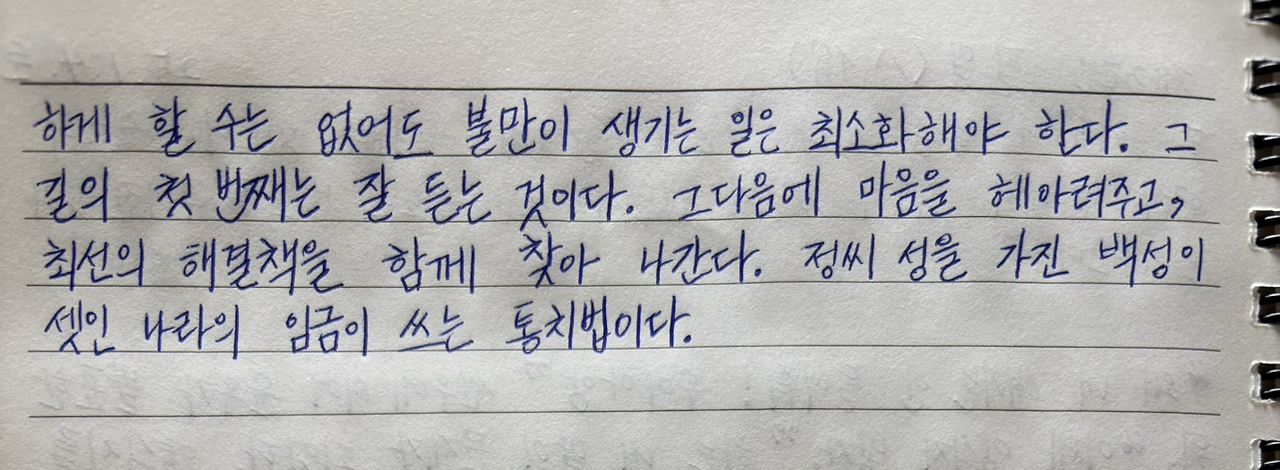 하게 할 수는 없어도 불만이 생기는 일은 최소화해야 한다. 그
길의 첫 번째는 잘 듣는 것이다. 그다음에 마음을 헤아려주고,
최선의 해결책을 함께 찾아 나간다. 정씨 성을 가진 백성이
셋인 나라의 임금이 쓰는 통치법이다.